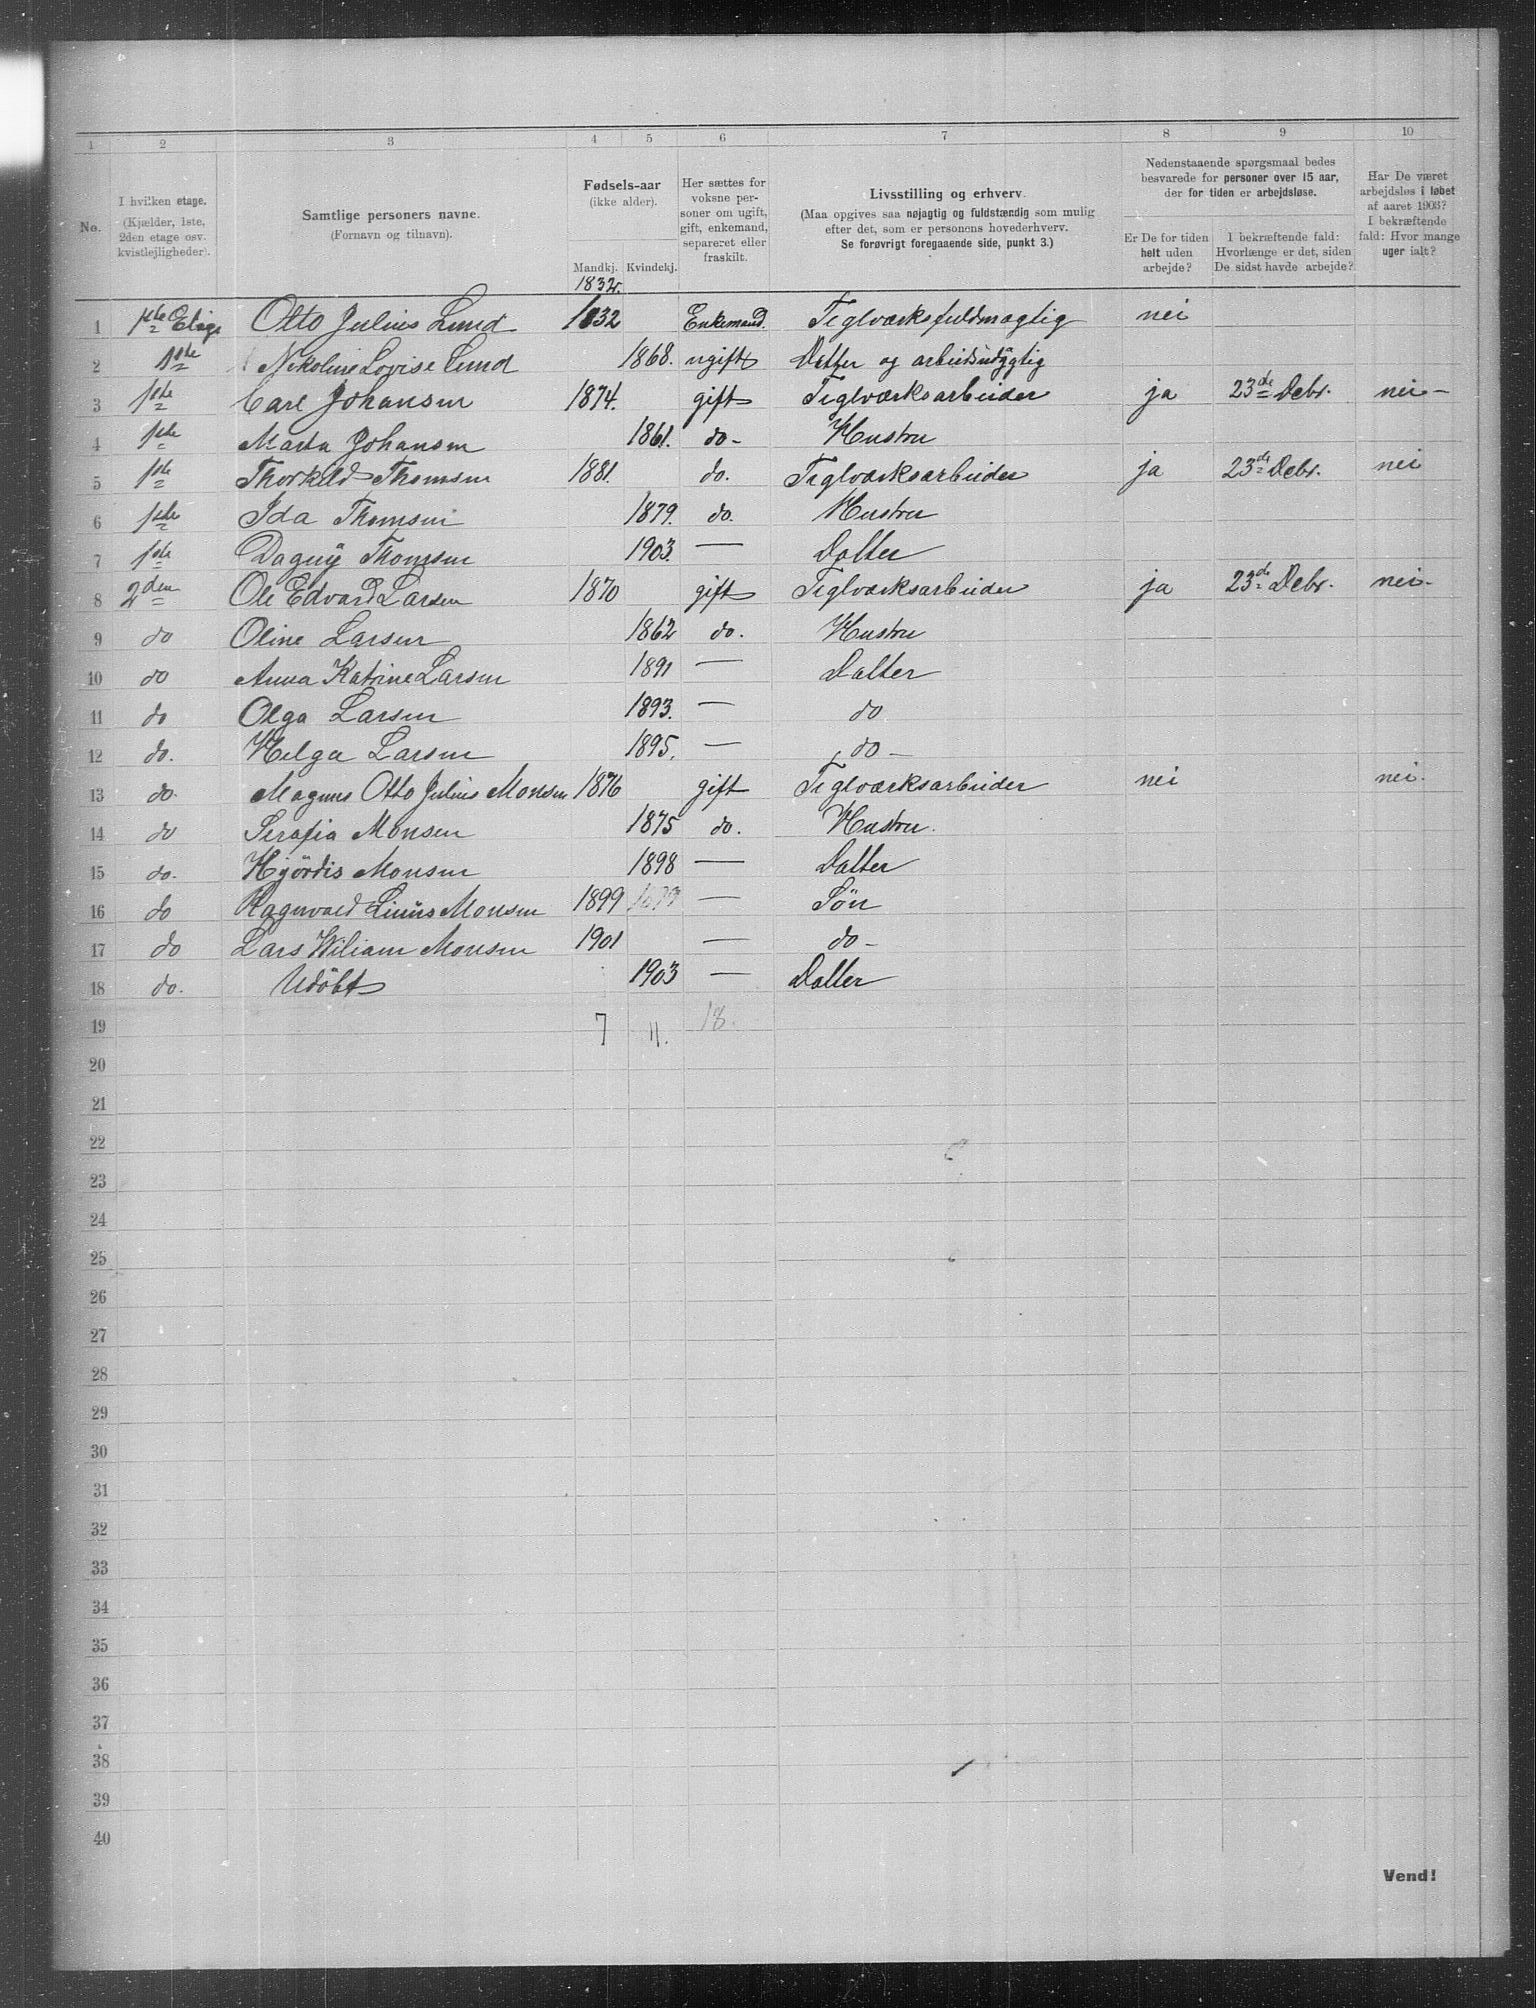 1 2 3 4 5 6 7 8 9 10
No.
I hvilken etage.
(Kjælder, 1ste,
2den etage osv.
kvistlejligheder).
Samtlige personers navne.
(Fornavn og tilnavn).
Fødsels-aar
(ikke alder).
Mandkj. Kvindekj.
Her sættes for
voksne per-
soner om ugift,
gift, enkemand,
separeret eller
fraskilt.
Livsstilling og erhverv.
(Maa opgives saa nøjagtig og fuldstændig som mulig
efter det, som er personens hovederhverv.
Se forøvrigt foregaaende side, punkt 3.)
Nedenstaaende spørgsmaal bedes
besvarede for personer over 15 aar,
der for tiden er arbejdsløse.
Er De for tiden
helt uden
arbejde?
I bekræftende fald:
Hvorlænge er det, siden
De sidst havde arbejde?
Har De været
arbejdsløs i løbet
af aaret 1903?
I bekræftende
fald: Hvor mange
uger ialt?
1832.
1 1ste Etage Otto Julius Lund 1832 Enkemand. Teglværksfuldmægtig nei
2 1ste Nikoline Lovise Lund 1868. ugift Datter og arbeidsudygtig
3 1ste Carl Johansen 1874. gift Teglværksarbeider ja 23de Debr. nei-
4 1ste Marta Johansen 1861. do- Hustru
5 1ste Thorkild Thomsen 1881. do. Teglværksarbeider ja 23de Debr. nei
6 1ste Ida Thomsen 1879. do. Hustru
7 1ste Dagny Thomsen 1903. — Datter
8 2den Ole Edvard Larsen 1870 gift Teglværksarbeider ja 23de Debr. nei-
9 do Oline Larsen 1862 do. Hustru
10 do Anna Katrine Larsen 1891 — Datter
11 do Olga Larsen 1893. — do
12 do. Helga Larsen 1895. — do-
13 do. Magnus Otto Julius Monsen 1876 gift Teglværksarbeider nei nei.
14 do Serafia Monsen 1875 do. Hustru.
15 do. Hjördis Monsen 1898 — Datter
16 do Ragnvald Linus Monsen 1899 — Sön
17 do Lars Wiliam Monsen 1901 — do-
18 do. Udöbt 1903 — Datter
19 7 11. 18.
20
21
22
23
24
25
26
27
28
29
30
31
32
33
34
35
36
37
38
39
40
Vend!